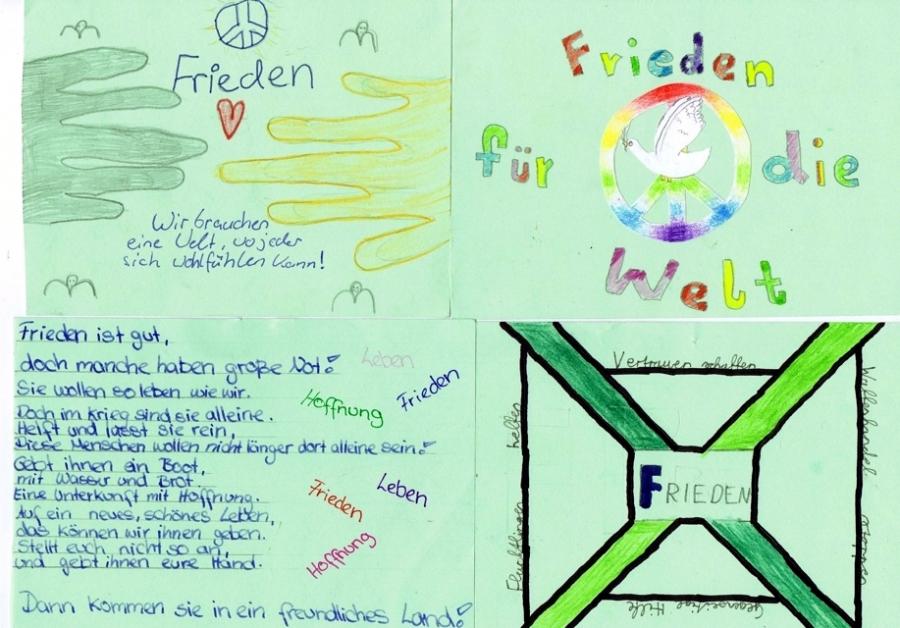 Frieden
Wir brauchen
eine Welt, wo jeder
sich wohlfühlen kann!
Frieden
für die
Welt
Frieden ist gut,
doch manche haben große Not!
Sie wollen so leben wie wir.
Doch im Krieg sind sie alleine.
Helft und lasst sie rein,
Diese Menschen wollen nicht länger dort alleine sein!
Gebt ihnen ein Boot,
mit Wasser und Brot.
Eine Unterkunft mit Hoffnung.
Auf ein neues, schönes Leben,
das können wir ihnen geben.
Stellt euch nicht so an,
und gebt ihnen eure Hand.
Dann kommen sie in ein freundliches Land!
Leben
Hoffnung
Frieden
Frieden
Leben
Hoffnung
Vertrauen schaffen
Flüchtlingen helfen
FRIEDEN
Waffenhandel stoppen
Gegenseitige Hilfe